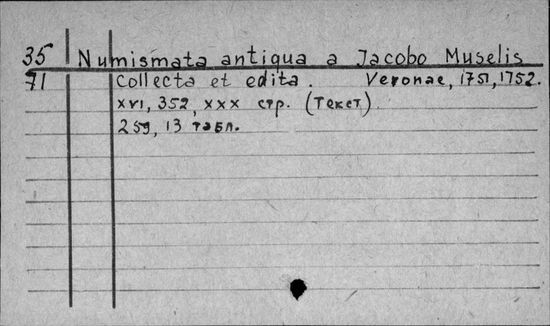 35 Numismata antiqua a Jacobo Muselis
71 collecta et edita. Veronae, 1751, 1752.
XVI, 352, XXX стр. (Текст)
259, 13 табл.